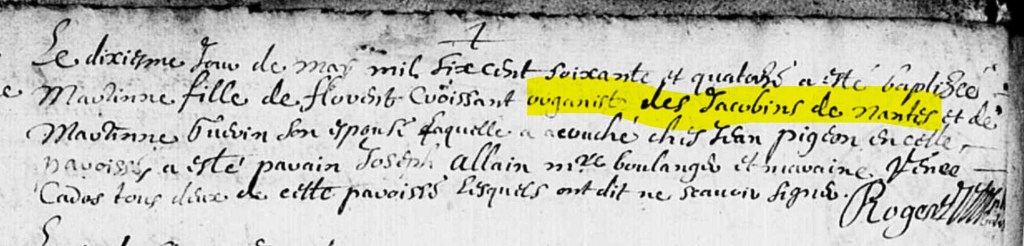 Le dixiesme Jour de may mil sixcent soixante et quatorze a esté baptizée
Martinne fille de florent Croissant organist des Jacobins de nantes et de
Martinne Guerin son espouse laquelle a acouché ches Jean pigeon en cette
parroisse, a esté parain Joseph Allain mre boulanger et maraine Renee
Cados tous deux de cette parroisse lesquels ont dit ne scavoir signer.
Roger